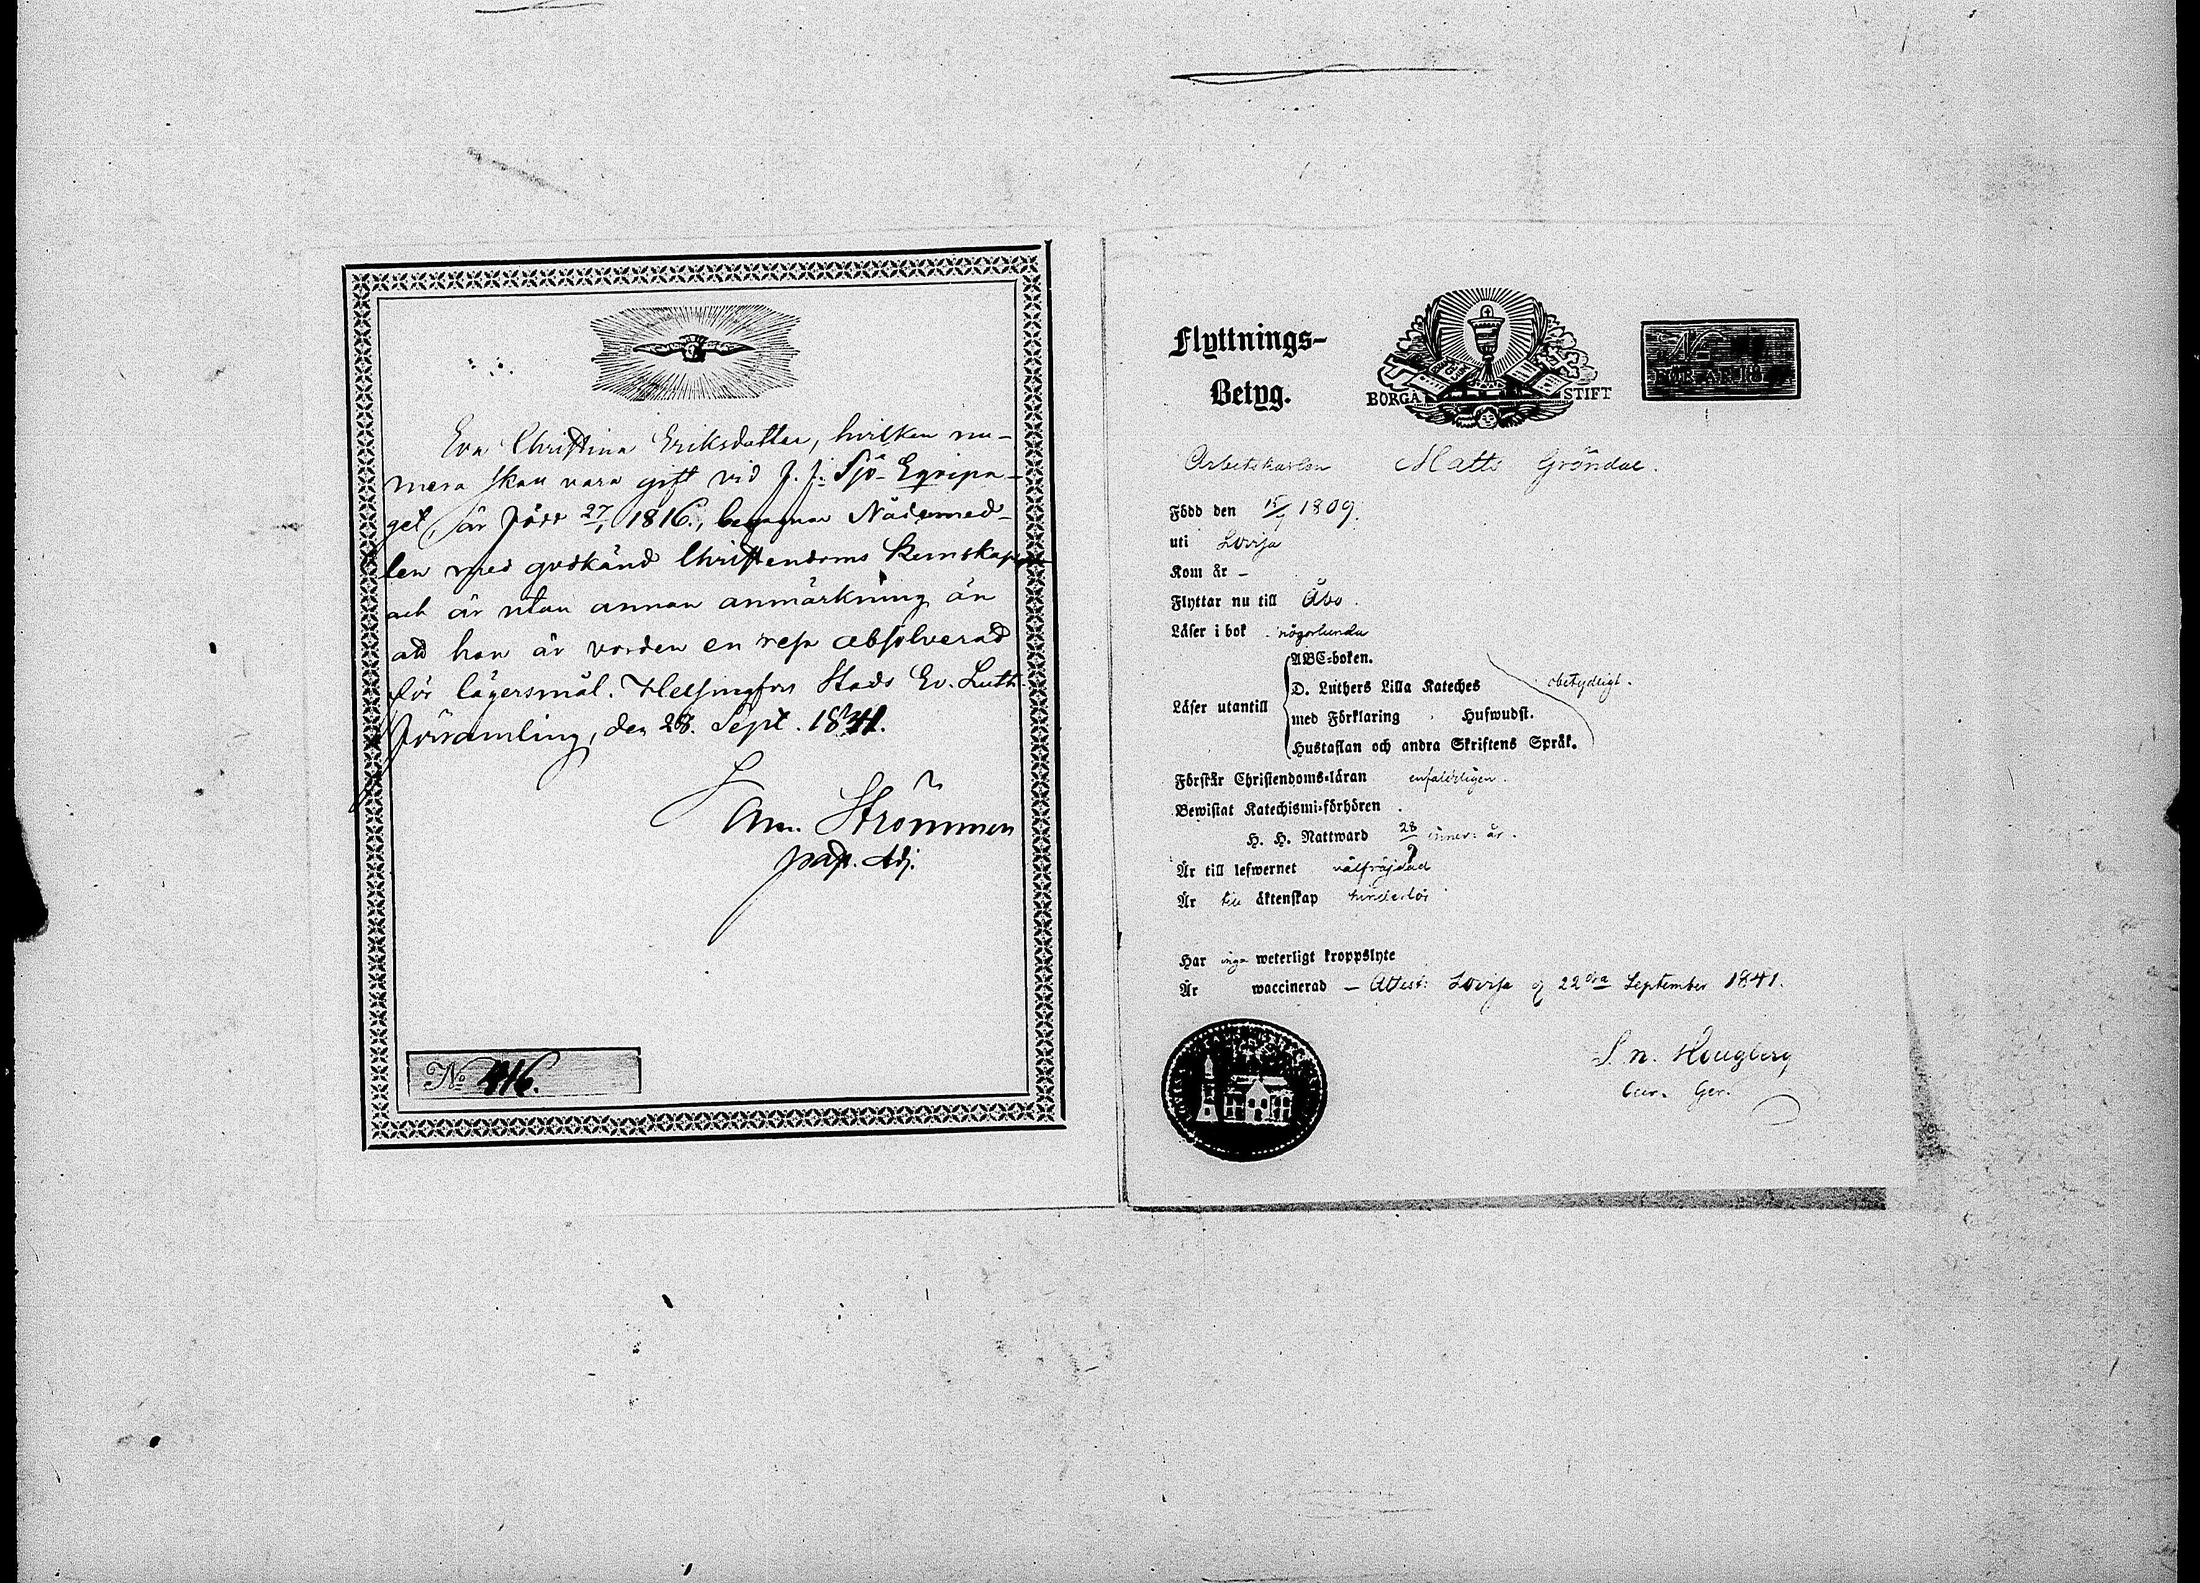 Eva Christina Eriksdotter, hvilken nu-
mera skall vara gift vid F. F: Sjö-Eqvipa-
get, är född 27/1 1816, begagnar Nådemed-
len med godkänd Christendoms kunskap
och är utan annan anmärkning än
att hon är vorden en resa absolverad
för lägersmål. Helsingfors Stads Ev. Luth.
församling, den 28. Sept. 1841.
Strömmer
past. Adj.
No 416.
Flyttnings-
Betyg.
BORGÅ STIFT
No
FÖR ÅR 18
Arbetskarlen Matts Gröndal.
Född den 15/9 1809.
uti Lovisa
Kom år –
Flyttar nu till Åbo.
Läser i bok någorlunda
Läser utantill
ABC-boken.
D. Luthers Lilla Kateches
med Förklaring Hufwudst.
Hustaflan och andra Skriftens Språk.
obetydligt.
Förstår Christendoms-läran enfaldeligen.
Bewistat Katechismi-förhören
H. H. Nattward 28 inner: år.
Är till lefwernet välfräjdad
Är till äktenskap hinderlös
Har inga weterligt kroppslyte
Är waccinerad – Attest: Lovisa d 22dra September 1841.